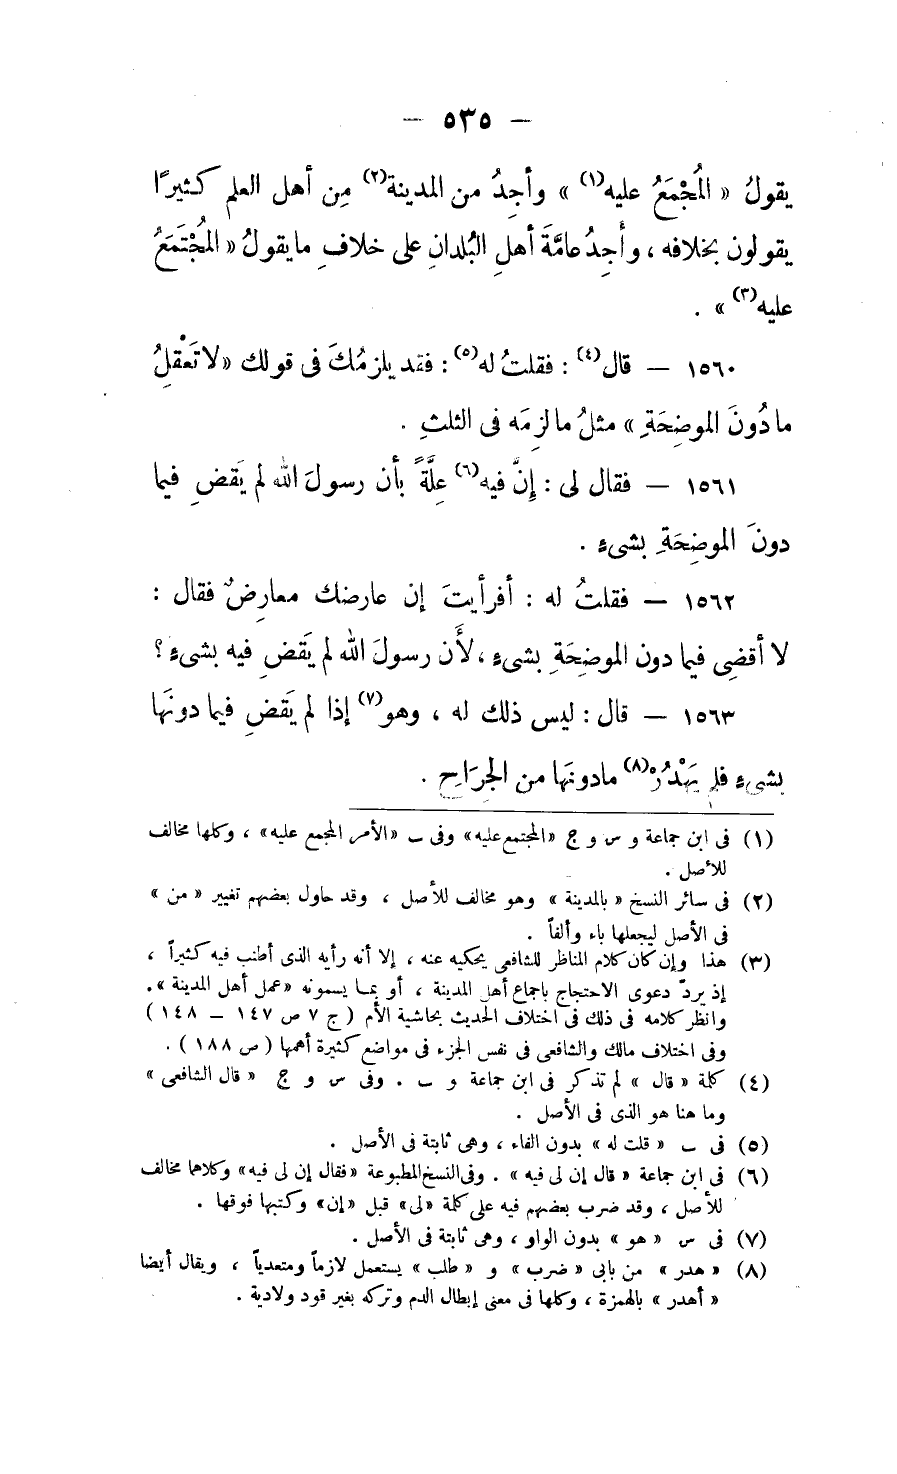 — ٥٣٥ —
يقولُ « المُجْمَعُ عليه(١) » وأجِدُ من المدينة(٢) مِن أهل العلم كثيرًا
يقولون بخلافه ، وأَجِدُ عامَّةَ أهلِ البُلدانِ على خلافِ ما يقولُ « المُجْتَمَعُ
عليه(٣) » .
١٥٦٠ — قال(٤) : فقلتُ له(٥) : فقد يلزمُكَ فى قولك « لا تَعْقلُ
ما دُونَ الموضِحَةِ » مثلُ ما لزِمَه فى الثلثِ .
١٥٦١ — فقال لى : إِنَّ فيه(٦) عِلَّةً بأن رسولَ الله لم يَقضِ فيما
دونَ الموضِحَةِ بشىءٍ .
١٥٦٢ — فقلتُ له : أفرأيتَ إن عارضك معارِضٌ فقال :
لا أقضِى فيما دون الموضِحَةِ بشىءٍ ، لأَن رسولَ الله لم يَقضِ فيه بشىءٍ ؟
١٥٦٣ — قال : ليس ذلك له ، وهو(٧) إذا لم يَقضِ فيما دونَها
بشىءٍ فلم يَهْدُرْ(٨) مادونَها من الجِرَاحِ .
(١) فى ابن جماعة و س و ج «المجتمع عليه» وفى ب «الأمر المجمع عليه» ، وكلها مخالف
للأصل .
(٢) فى سائر النسخ « بالمدينة » وهو مخالف للأصل ، وقد حاول بعضهم تغيير « من »
فى الأصل ليجعلها باء وألفاً .
(٣) هذا وإن كان كلام المناظر للشافعى يحكيه عنه ، إلا أنه رأيه الذى أطنب فيه كثيراً ،
إذ يردّ دعوى الاحتجاج باجماع أهل المدينة ، أو بما يسمونه «عمل أهل المدينة » .
وانظر كلامه فى ذلك فى اختلاف الحديث بحاشية الأم ( ج ٧ ص ١٤٧ — ١٤٨ )
وفى اختلاف مالك والشافعى فى نفس الجزء فى مواضع كثيرة أهمها ( ص ١٨٨ ) .
(٤) كلمة « قال » لم تذكر فى ابن جماعة و ب . وفى س و ج « قال الشافعى »
وما هنا هو الذى فى الأصل .
(٥) فى ب « قلت له » بدون الفاء ، وهى ثابتة فى الأصل .
(٦) فى ابن جماعة « قال إن لى فيه » . وفى النسخ المطبوعة «فقال إن لى فيه» وكلاهما مخالف
للأصل ، وقد ضرب بعضهم فيه على كلمة «لى» قبل «إن» وكتبها فوقها .
(٧) فى س « هو » بدون الواو ، وهى ثابتة فى الأصل .
(٨) « هدر » من بابى « ضرب » و « طلب » يستعمل لازماً ومتعدياً ، ويقال أيضا
« أهدر » بالهمزة ، وكلها فى معنى إبطال الدم وتركه بغير قود ولادية .